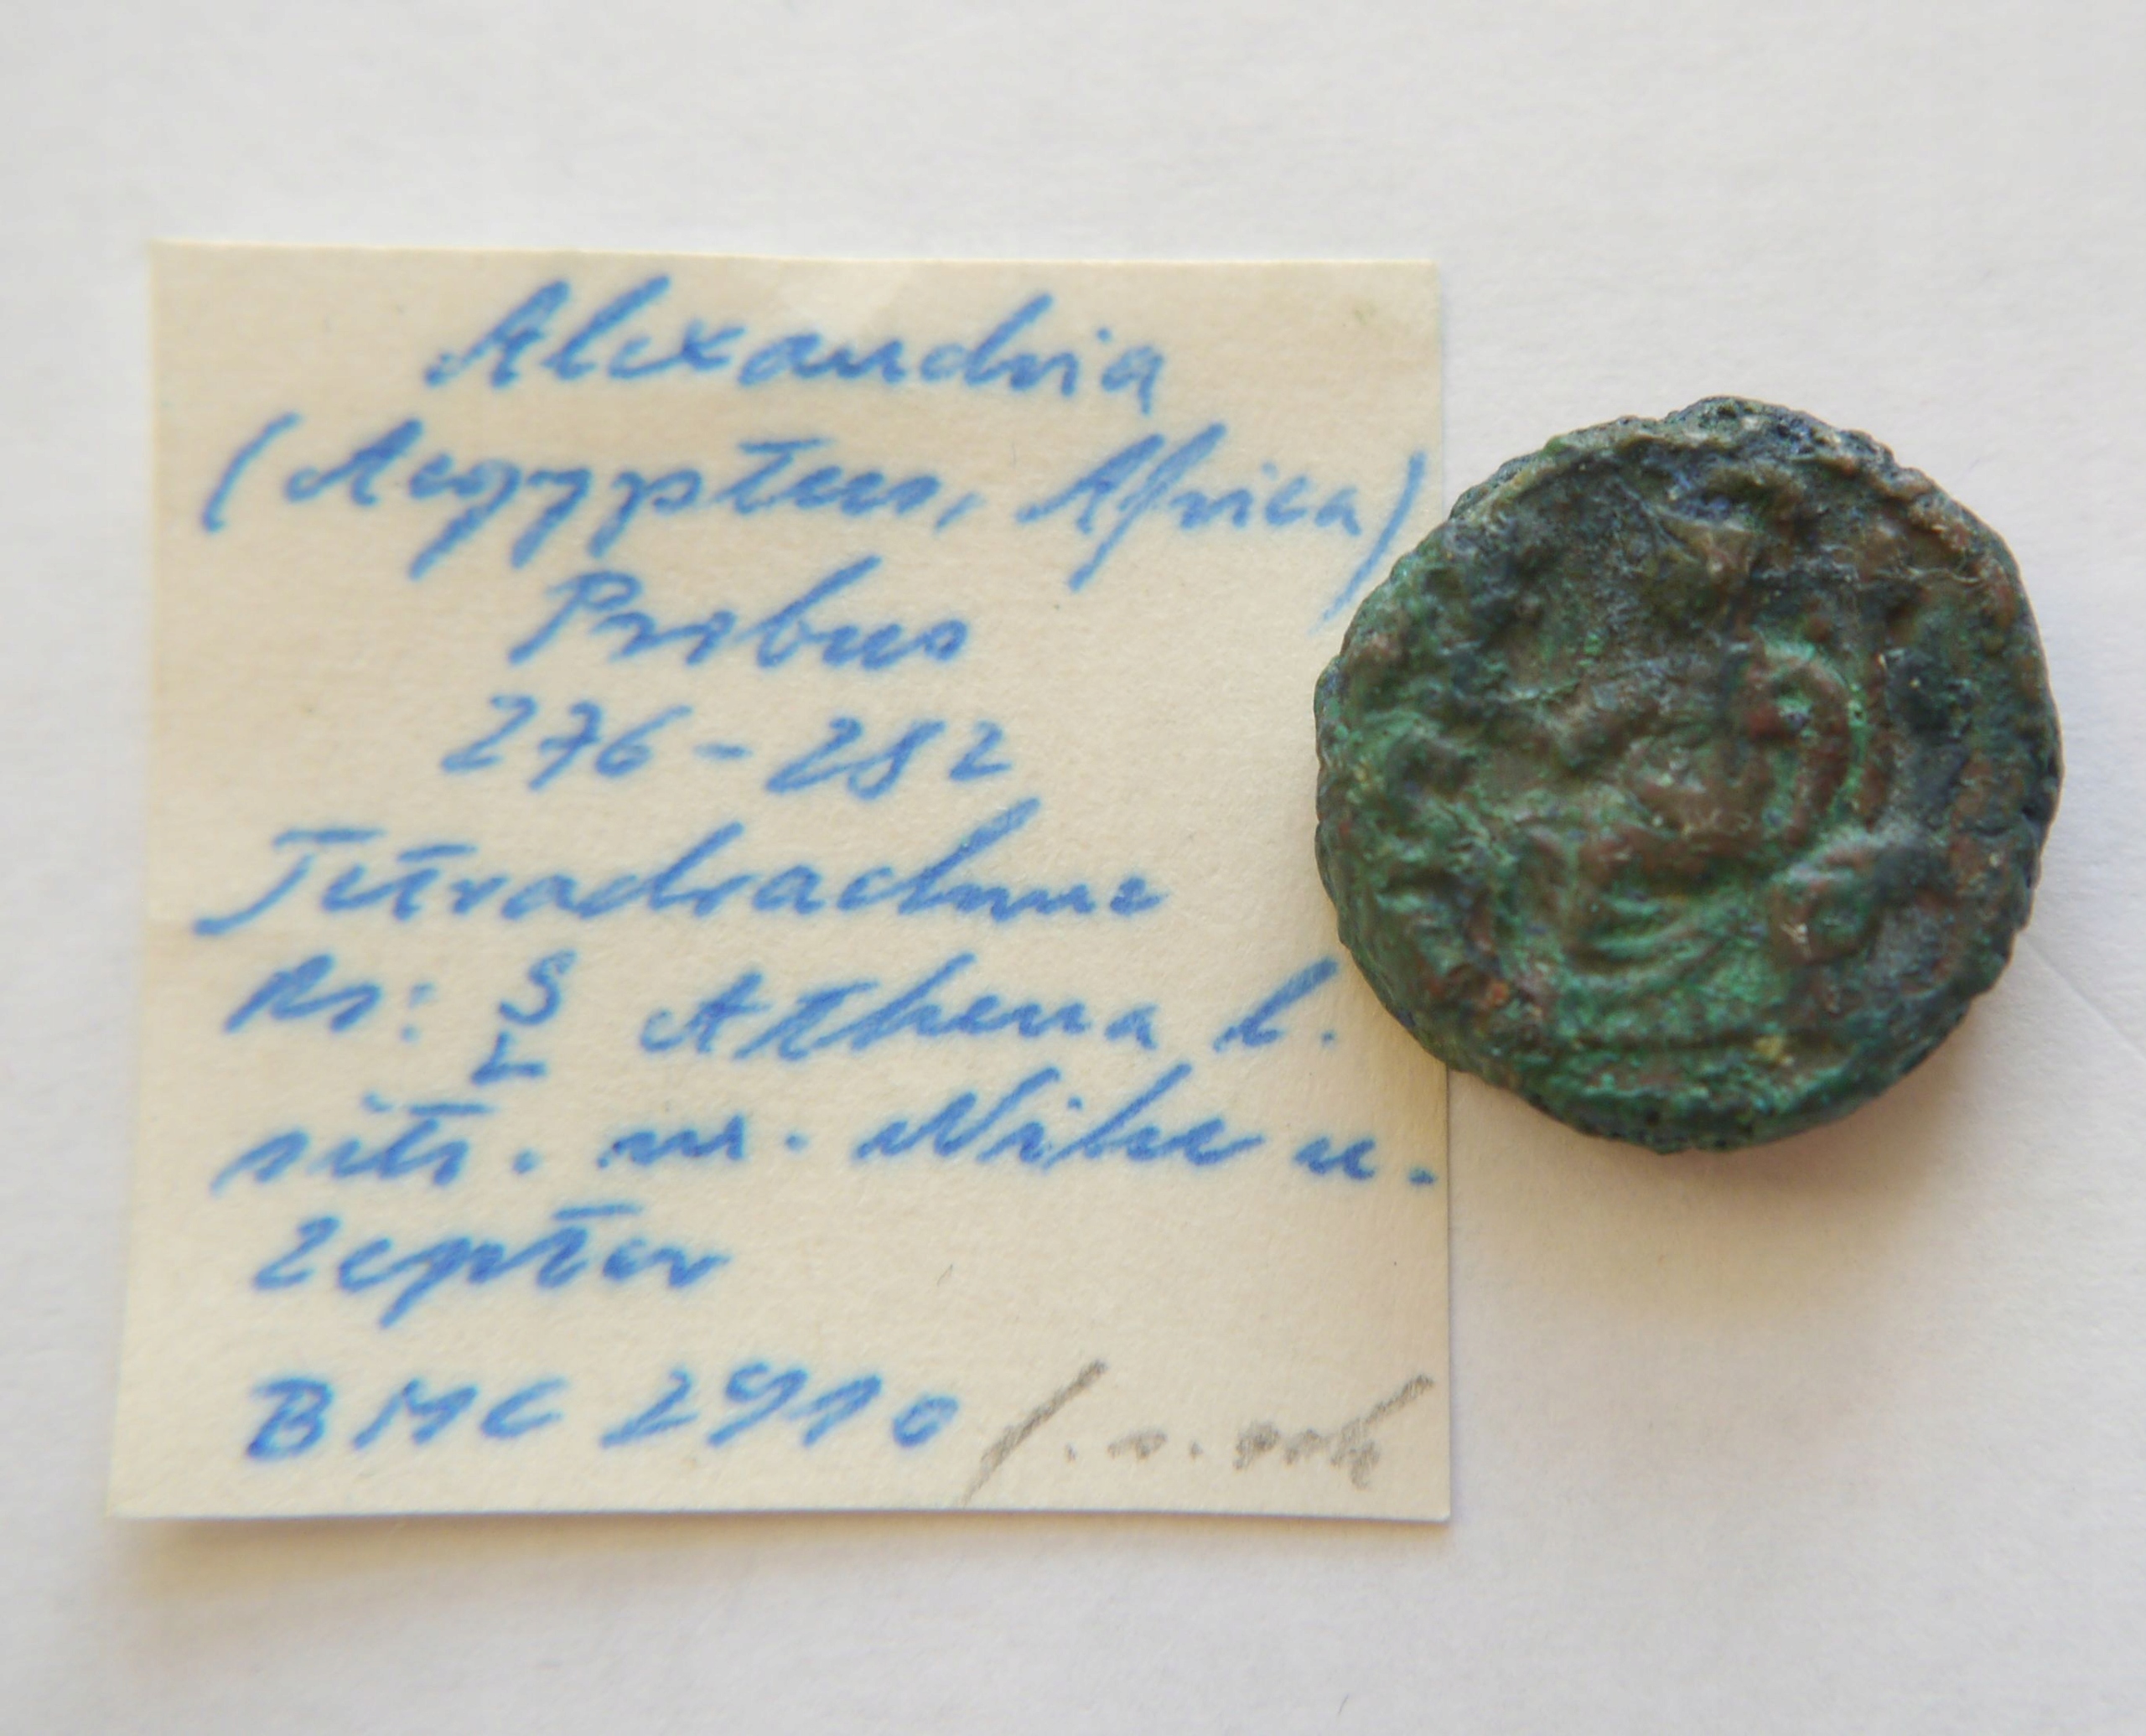 Alexandria
(Aegyptus, Africa)
Probus
276 - 282
Tetradrachme
Rs: S L Athena l.
sitz. m. Nike u.
Zepter
BMC 2910 f. s.